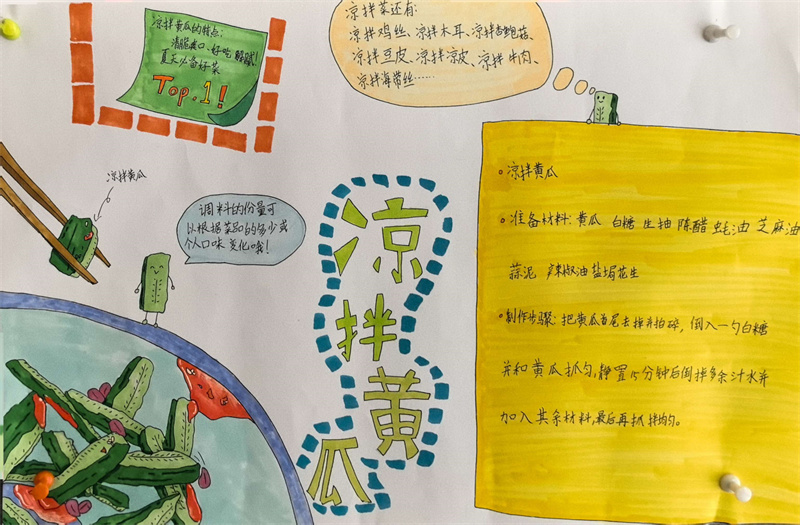 凉拌黄瓜的特点:
清脆爽口、好吃解腻!
夏天必备好菜
Top.1!
凉拌菜还有:
凉拌鸡丝、凉拌木耳、凉拌杏鲍菇、
凉拌豆皮、凉拌凉皮、凉拌牛肉、
凉拌海带丝……
凉拌黄瓜
调料的份量可
以根据菜品的多少或
个人口味变化哦!
凉拌黄瓜
凉拌黄瓜
准备材料:黄瓜 白糖 生抽 陈醋 蚝油 芝麻油
蒜泥 辣椒油 盐 花生
制作步骤:把黄瓜首尾去掉并拍碎,倒入一勺白糖
并和黄瓜抓匀,静置15分钟后倒掉多余汁水并
加入其余材料,最后再抓拌均匀。